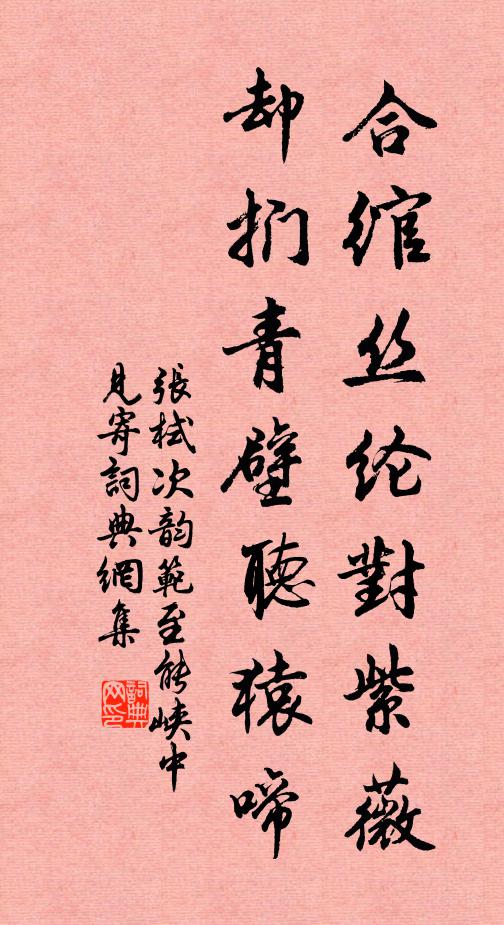 合绾丝纶對紫薇
却捫青壁聽猿啼
張栻次韵範至能峽中
見寄詞典網集
詞典网印